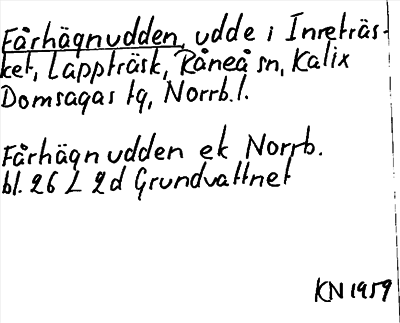 Fårhägnudden, udde i Inreträs-
ket, Lappträsk, Råneå sn, Kalix
Domsagas tg, Norrb.l.
Fårhägnudden ek Norrb.
bl. 26 L 2d Grundvattnet
KN 1959